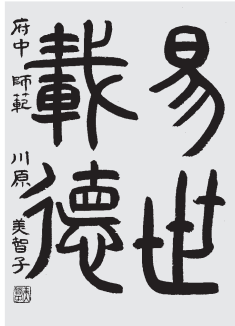 易世
載德
府中 師範 川原 美智子